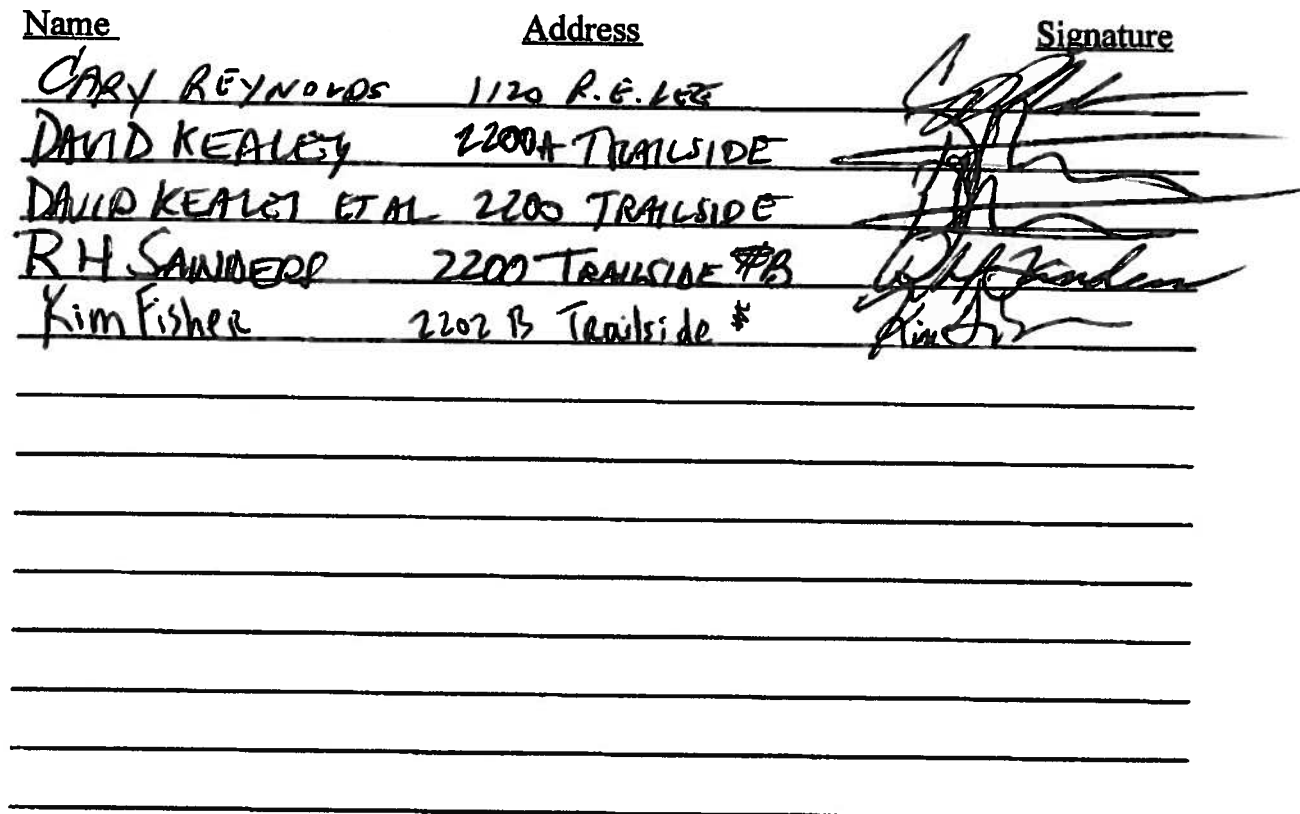 Name Address Signature
CARY REYNOLDS 1120 R.E. LEE
DAVID KEALEY 2200A TRAILSIDE
DAVID KEALEY ET AL 2200 TRAILSIDE
R H SAUNDERS 2200 TRAILSIDE #B
Kim Fisher 2202 B Trailside #